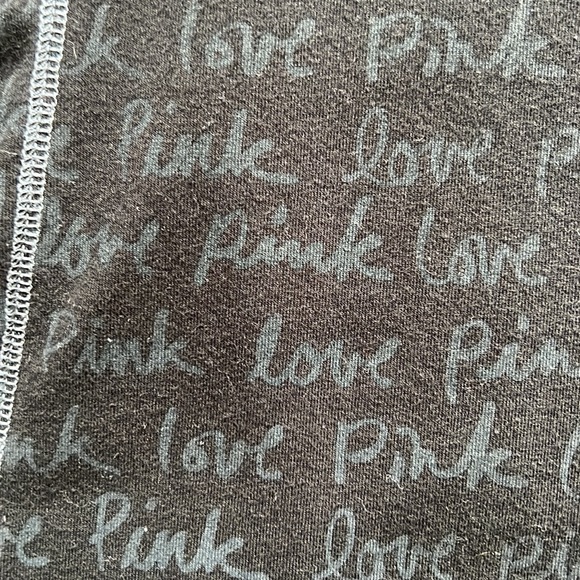 love Pink
Pink love
love Pink love
Pink love Pink
love Pink
Pink love